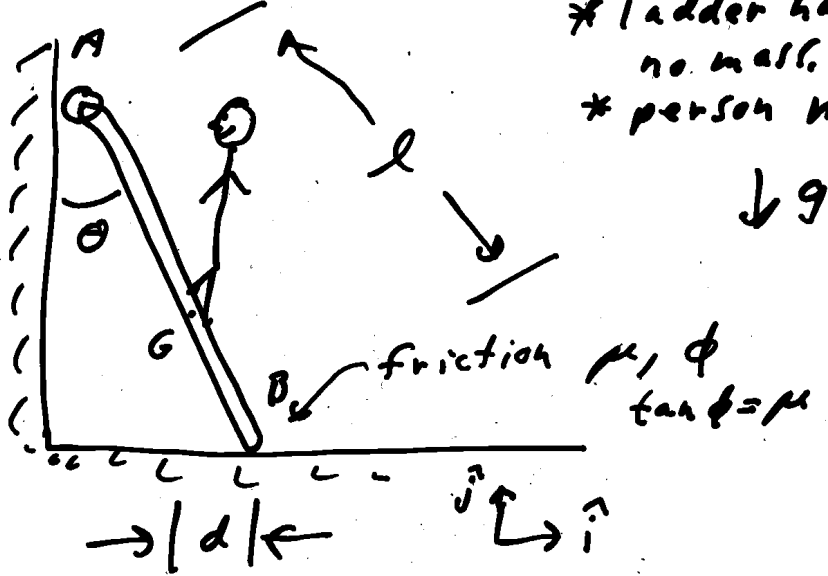 * ladder ha
no mass.
* person
A
l
↓ g
θ
G
B
friction μ, φ
tan φ = μ
d
ĵ
î